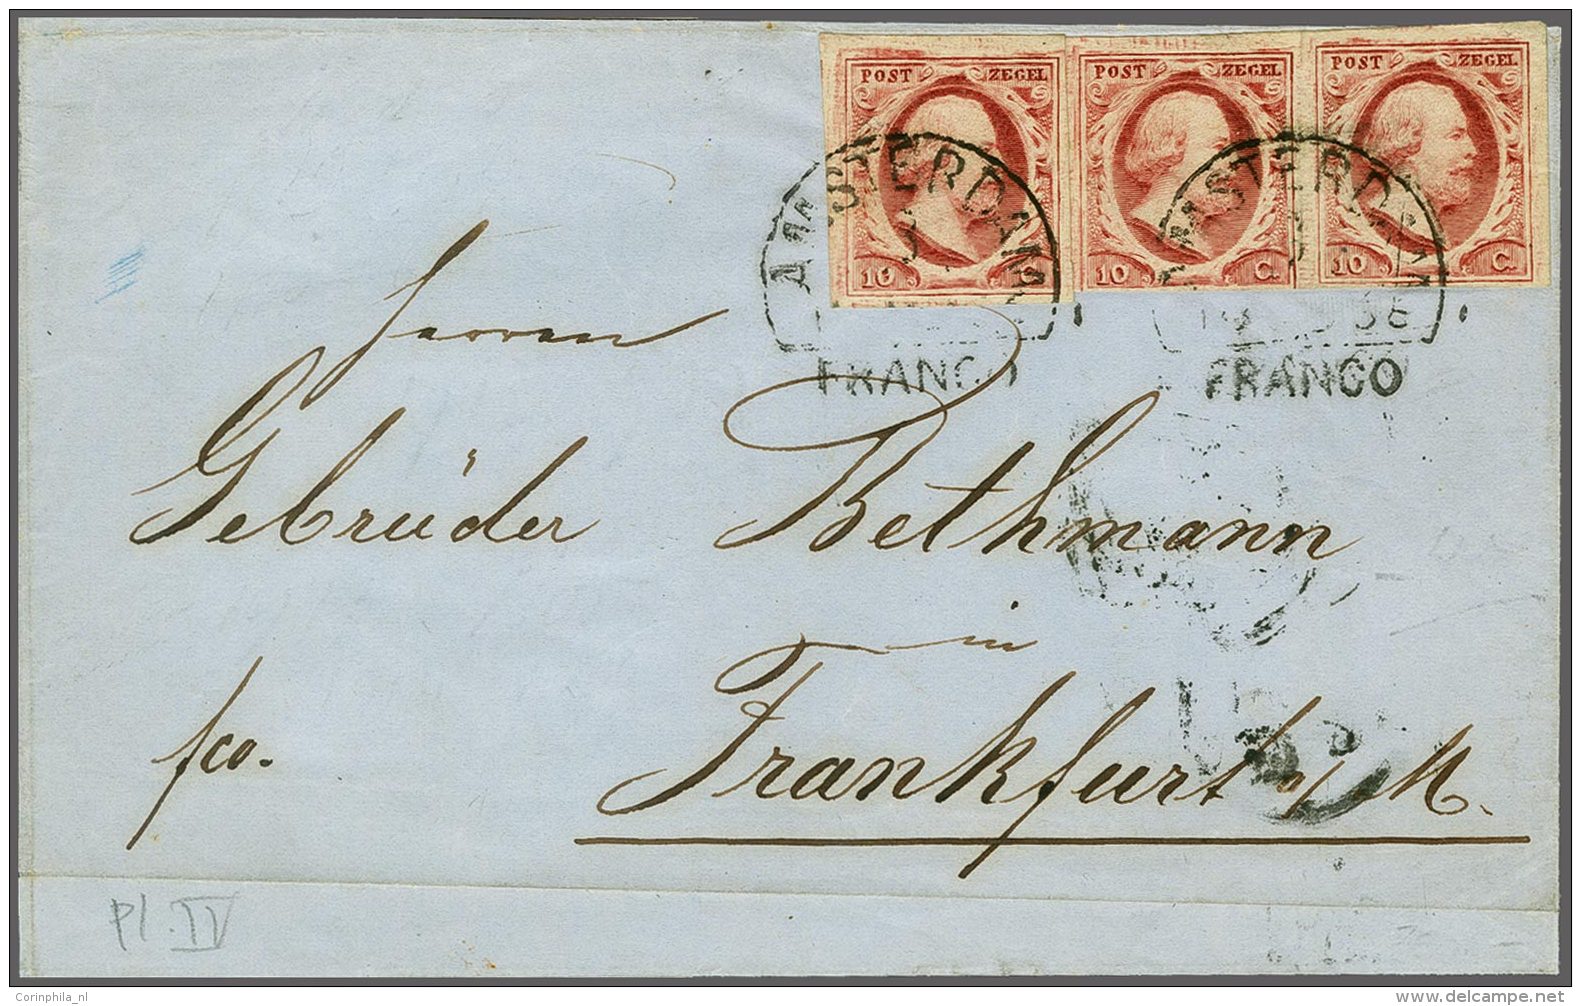 POST ZEGEL POST ZEGEL POST ZEGEL
AMSTERDAM AMSTERDAM
10 10 C. 10 C.
FRANCO FRANCO
Herren
Gebrüder Bethmann,
in
fco.
Frankfurt a/M.
Pl. IV
Corinphila_nl